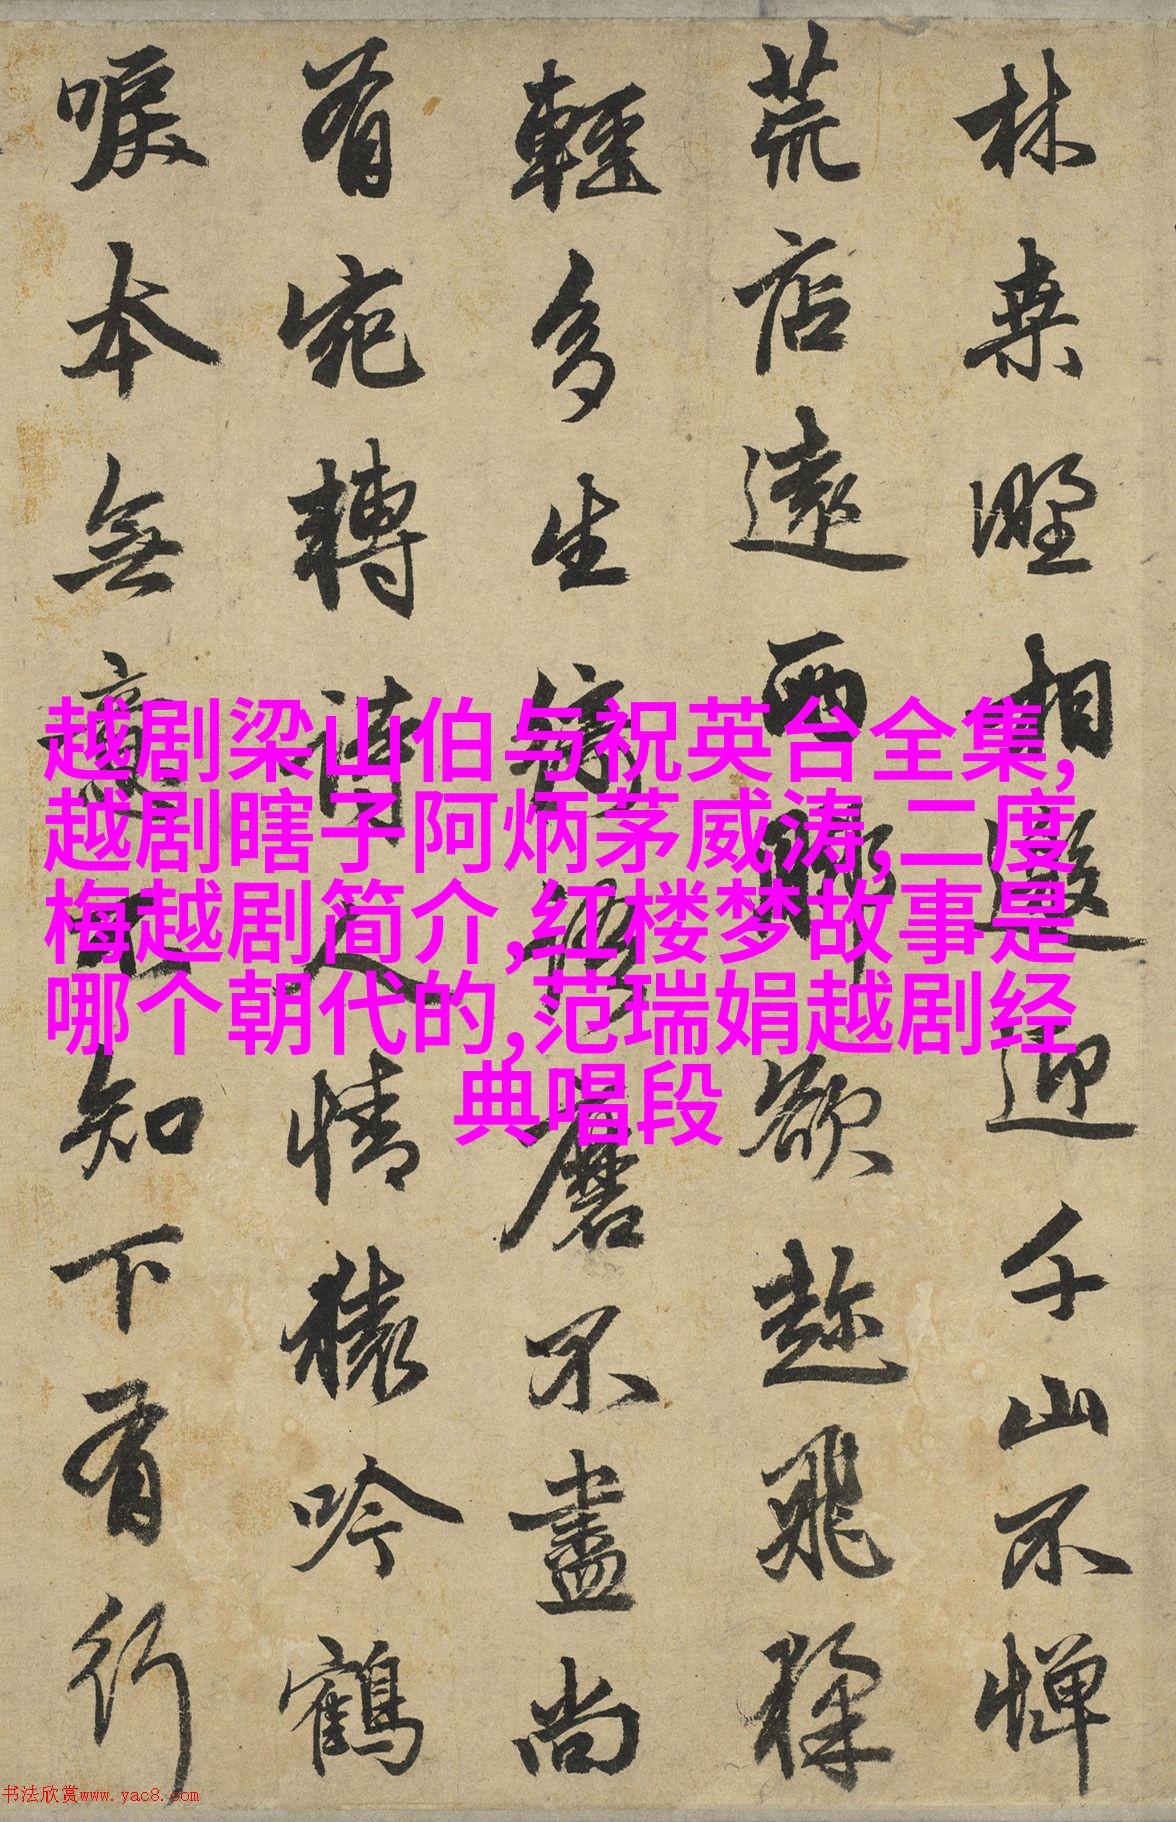 林桒野相邀迎千山不憚
荒店遠兩腳欲趂飛猱
輕多生綺語磨不盡尚
有宛轉詩人情猿吟鶴
唳本無意不知下有行
越剧梁山伯与祝英台全集,
越剧瞎子阿炳茅威涛,二度
梅越剧简介,红楼梦故事是
哪个朝代的,范瑞娟越剧经
典唱段
书法欣赏www.yac8.com